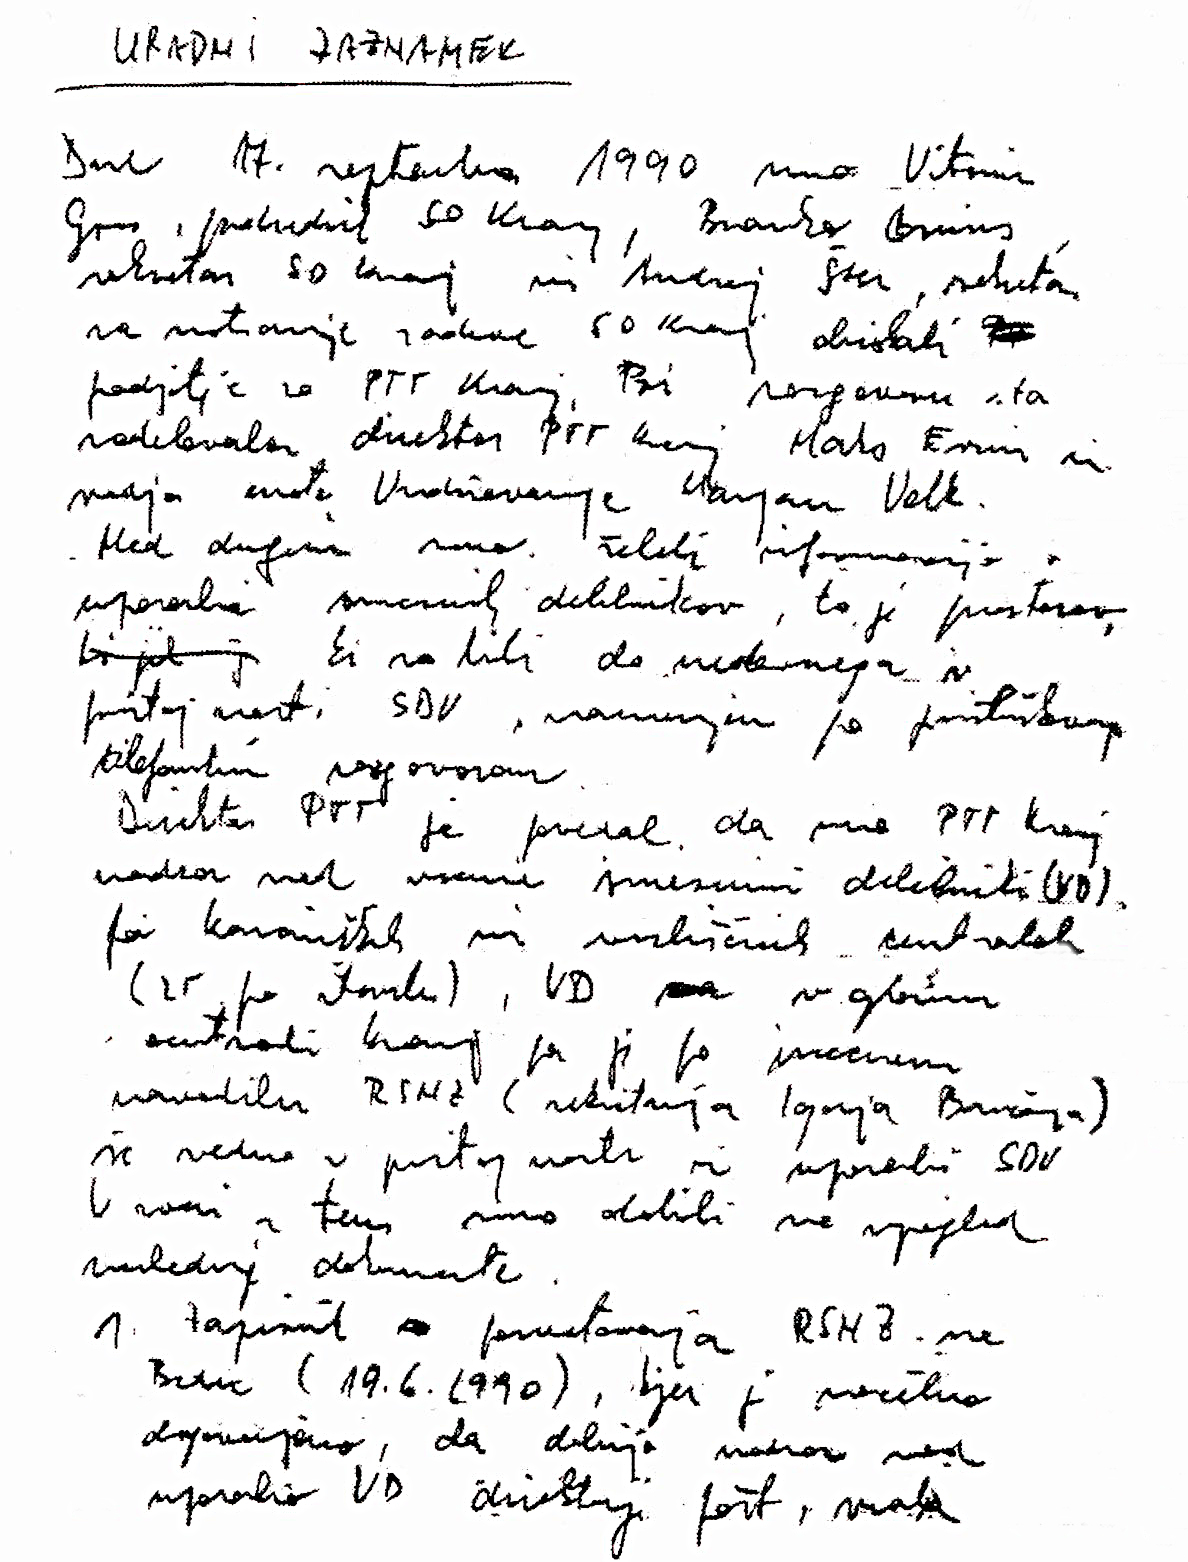 URADNI ZAZNAMEK
Dne 17. septembra 1990 smo Vitomir
Gros, predsednik SO Kranj, Branko Grims,
sekretar SO Kranj in Andrej Šter, sekretar
za notranje zadeve SO Kranj obiskali
podjetje za PTT Kranj. Pri razgovoru sta
sodelovala direktor PTT Kranj Marko Ermin in
vodja enote Vzdrževanje Marjan Velk.
Med drugim smo želeli informacijo o
uporabi smernih delilnikov, to je prostorov,
ki so bili do nedavnega v
pristojnosti SDV, namenjeni pa prisluškovanju
telefonskim razgovorom.
Direktor PTT je povedal, da ima PTT Kranj
nadzor nad vsemi smernimi delilniki (VD)
pri končnih in vozliščnih centralah
(25 po številu), VD v glavni
centrali Kranj pa je po izrecnem
navodilu RSNZ (sekretarja Igorja Bavčarja)
še vedno v pristojnosti in uporabi SDV
V zvezi s tem smo dobili na vpogled
naslednje dokumente.
1. Zapisnik posvetovanja RSNZ na
Brdu (19.6.1990), kjer je načelno
dogovorjeno, da dobijo nadzor nad
uporabo VD direktorji pošt, vsak